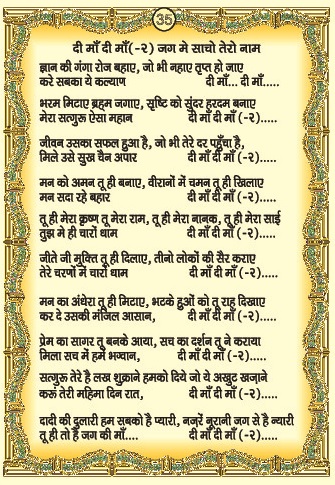 35
दी माँ दी माँ(-२) जग मे साचो तेरो नाम
ज्ञान की गंगा रोज बहाए, जो भी नहाए तृप्त हो जाए
करे सबका ये कल्याण दी माँ... दी माँ.....
भरम मिटाए ब्रह्म जगाए, सृष्टि को सुंदर हरदम बनाए
मेरा सत्गुरू ऐसा महान दी माँ दी माँ (-२).....
जीवन उसका सफल हुआ है, जो भी तेरे दर पहुँचा है,
मिले उसे सुख चैन अपार दी माँ दी माँ (-२).....
मन को अमन तू ही बनाए, वीरानों में चमन तू ही खिलाए
मन सदा रहे बहार दी माँ दी माँ (-२).....
तू ही मेरा कृष्ण तू मेरा राम, तू ही मेरा नानक, तू ही मेरा साई
तुझ मे ही चारों धाम दी माँ दी माँ (-२).....
जीते जी मुक्ति तू ही दिलाए, तीनो लोकों की सैर कराए
तेरे चरणों में चारों धाम दी माँ दी माँ (-२).....
मन का अंधेरा तू ही मिटाए, भटके हुओं को तू राह दिखाए
कर दे उसकी मंजिल आसान, दी माँ दी माँ (-२).....
प्रेम का सागर तू बनके आया, सच का दर्शन तू ने कराया
मिला सच में हमें भगवान, दी माँ दी माँ (-२).....
सत्गुरू तेरे है लख शुक्राने हमको दिये जो ये अखुट खज़ाने
करूं तेरी महिमा दिन रात, दी माँ दी माँ (-२).....
दादी की दुलारी हम सबको है प्यारी, नज़रें नूरानी जग से है न्यारी
तू ही तो है जग की माँ.... दी माँ दी माँ (-२).....